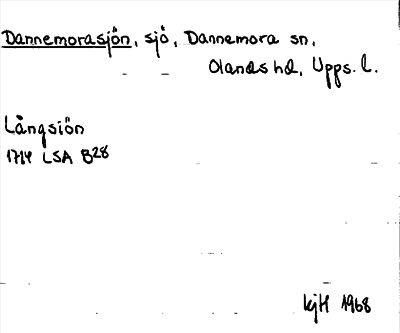 Dannemorasjön, sjö, Dannemora sn,
Olands hd, Upps. l.
Långsiön
1714 LSA B28
kjH 1968